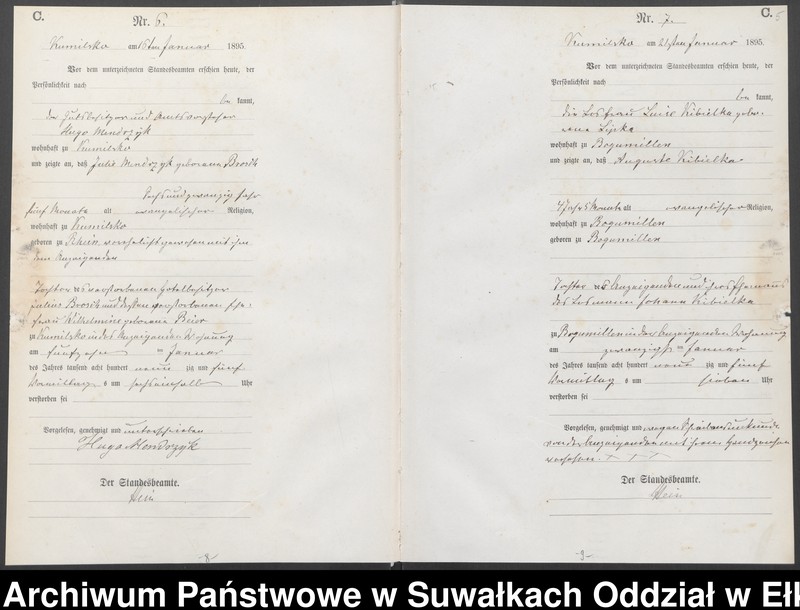 C.
Nr. 6.
Kumilsko am 16ten Januar 1895.
Vor dem unterzeichneten Standesbeamten erschien heute, der
Persönlichkeit nach
be kannt,
der Gutsbesitzer und Amtsvorsteher
Hugo Mendrzyk
wohnhaft zu Kumilsko
und zeigte an, daß Julie Mendrzyk geborene Brosck
sechsundzwanzig Jahr
fünf Monate alt evangelischer Religion,
wohnhaft zu Kumilsko
geboren zu Rhein, verehelicht gewesen mit ihm
dem Anzeigenden
Tochter des verstorbenen Hotelbesitzer
Julius Brosck und dessen verstorbenen Ehe-
frau Wilhelmine geborene Beier
zu Kumilsko in des Anzeigenden Wohnung
am fünfzehn ten Januar
des Jahres tausend acht hundert neun zig und fünf
Vormittags um sechseinhalb Uhr
verstorben sei
Vorgelesen, genehmigt und unterschrieben
Hugo Mendrzyk
Der Standesbeamte.
Hein
-8-
C.
Nr. 7.
Kumilsko am 21sten Januar 1895.
Vor dem unterzeichneten Standesbeamten erschien heute, der
Persönlichkeit nach
be kannt,
die Losfrau Luise Kibielka gebor-
ene Lipka
wohnhaft zu Bogumillen
und zeigte an, daß Auguste Kibielka
4 Jahr 5 Monate alt evangelischer Religion,
wohnhaft zu Bogumillen
geboren zu Bogumillen
Tochter der Anzeigenden und ihres Ehemannes
des Losmann Johann Kibielka
zu Bogumillen in der Anzeigenden Wohnung
am zwanzigsten Januar
des Jahres tausend acht hundert neun zig und fünf
Vormittag s um sieben Uhr
verstorben sei
Vorgelesen, genehmigt und wegen Schreibensunkunde
von der Anzeigenden mit ihrem Handzeichen
versehen. + + +
Der Standesbeamte.
Hein
-9-
Archiwum Państwowe w Suwałkach Oddział w Ełk